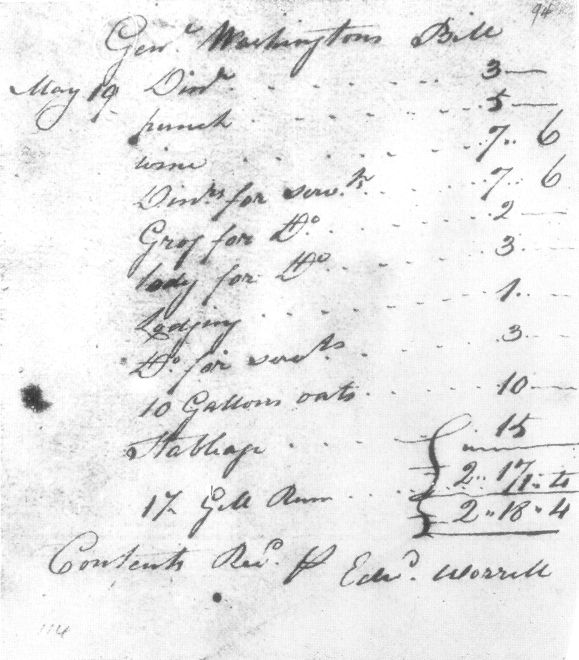 94
Genl Washingtons Bill
May 19 Dinr 3 —
punch 5 —
wine 7 .. 6
Dinrs for servts 7 .. 6
Grog for Do 2 —
lody for Do 3 —
Lodging 1 .. —
Do for servts 3 —
10 Gallons oats 10 —
Stablage 15
2 .. 17
17 Gill Rum 1 .. 4
2 .. 18 .. 4
Contents Recd. Edwd. Worrell
114